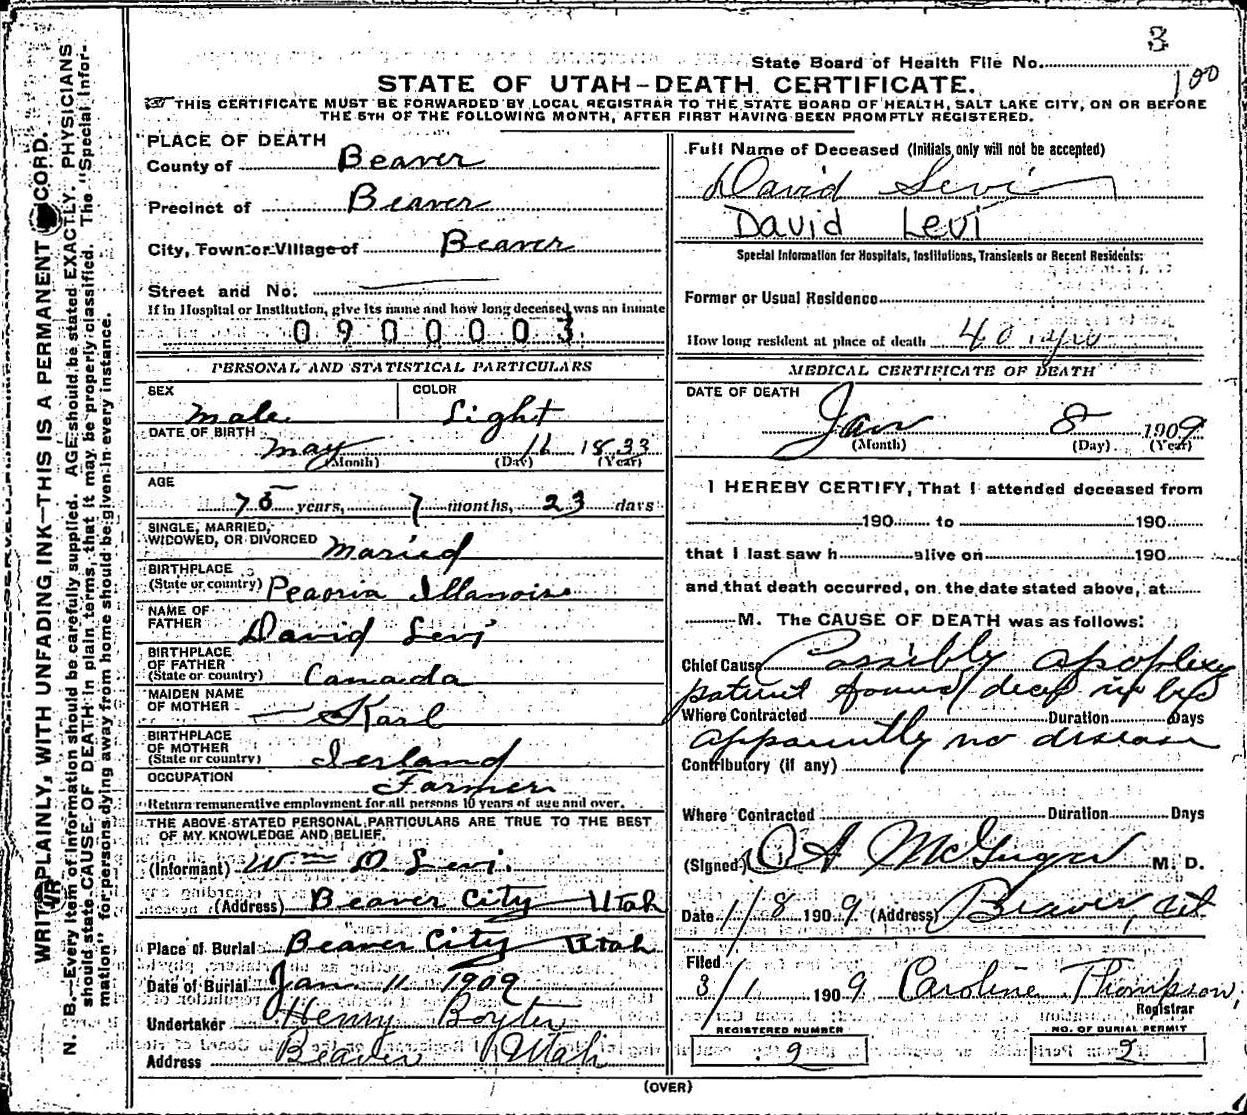 3
State Board of Health File No.
100
STATE OF UTAH—DEATH CERTIFICATE.
THIS CERTIFICATE MUST BE FORWARDED BY LOCAL REGISTRAR TO THE STATE BOARD OF HEALTH, SALT LAKE CITY, ON OR BEFORE
THE 5TH OF THE FOLLOWING MONTH, AFTER FIRST HAVING BEEN PROMPTLY REGISTERED.
WRITE PLAINLY, WITH UNFADING INK—THIS IS A PERMANENT RECORD.
N. B.—Every item of information should be carefully supplied. AGE should be stated EXACTLY. PHYSICIANS
should state CAUSE OF DEATH in plain terms, that it may be properly classified. The "Special Infor-
mation" for persons dying away from home should be given in every instance.
PLACE OF DEATH
County of Beaver
Precinct of Beaver
City, Town or Village of Beaver
Street and No.
If in Hospital or Institution, give its name and how long deceased was an inmate
0900003
PERSONAL AND STATISTICAL PARTICULARS
SEX male
COLOR Light
DATE OF BIRTH may 16 1833
(Month) (Day) (Year)
AGE
75 years, 7 months, 23 days
SINGLE, MARRIED,
WIDOWED, OR DIVORCED Maried
BIRTHPLACE
(State or country) Peaoria Illanoise
NAME OF
FATHER David Levi
BIRTHPLACE
OF FATHER
(State or country) Canada
MAIDEN NAME
OF MOTHER — Karl
BIRTHPLACE
OF MOTHER
(State or country) Ierland
OCCUPATION Farmer
Return remunerative employment for all persons 10 years of age and over.
THE ABOVE STATED PERSONAL PARTICULARS ARE TRUE TO THE BEST
OF MY KNOWLEDGE AND BELIEF.
(Informant) Wm D. Levi.
(Address) Beaver City Utah
Place of Burial Beaver City Utah
Date of Burial Jan 11 1909
Undertaker Henry Boyter
Address Beaver Utah
Full Name of Deceased (Initials only will not be accepted)
David Levi
David Levi
Special Information for Hospitals, Institutions, Transients or Recent Residents:
Former or Usual Residence
How long resident at place of death 40 yrs
MEDICAL CERTIFICATE OF DEATH
DATE OF DEATH
Jan 8 1909
(Month) (Day) (Year)
I HEREBY CERTIFY, That I attended deceased from
190 to 190
that I last saw h alive on 190
and that death occurred, on the date stated above, at
M. The CAUSE OF DEATH was as follows:
Chief Cause Possibly apoplexy
patient found dead in bed
Where Contracted Duration Days
apparently no disease
Contributory (if any)
Where Contracted Duration Days
(Signed) M. D.
Date 1/8 1909 (Address) Beaver, Ut
Filed
3/1 1909 Caroline Thompson,
Registrar
REGISTERED NUMBER
2
NO. OF BURIAL PERMIT
2
(OVER)